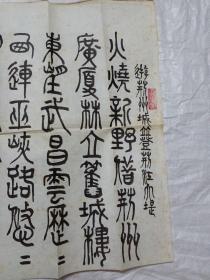 遊荊州城登荊江大堤
火燒新野借荊州
廣廈林立舊城樓
東望武昌雲歷二
西連巫峽路悠二